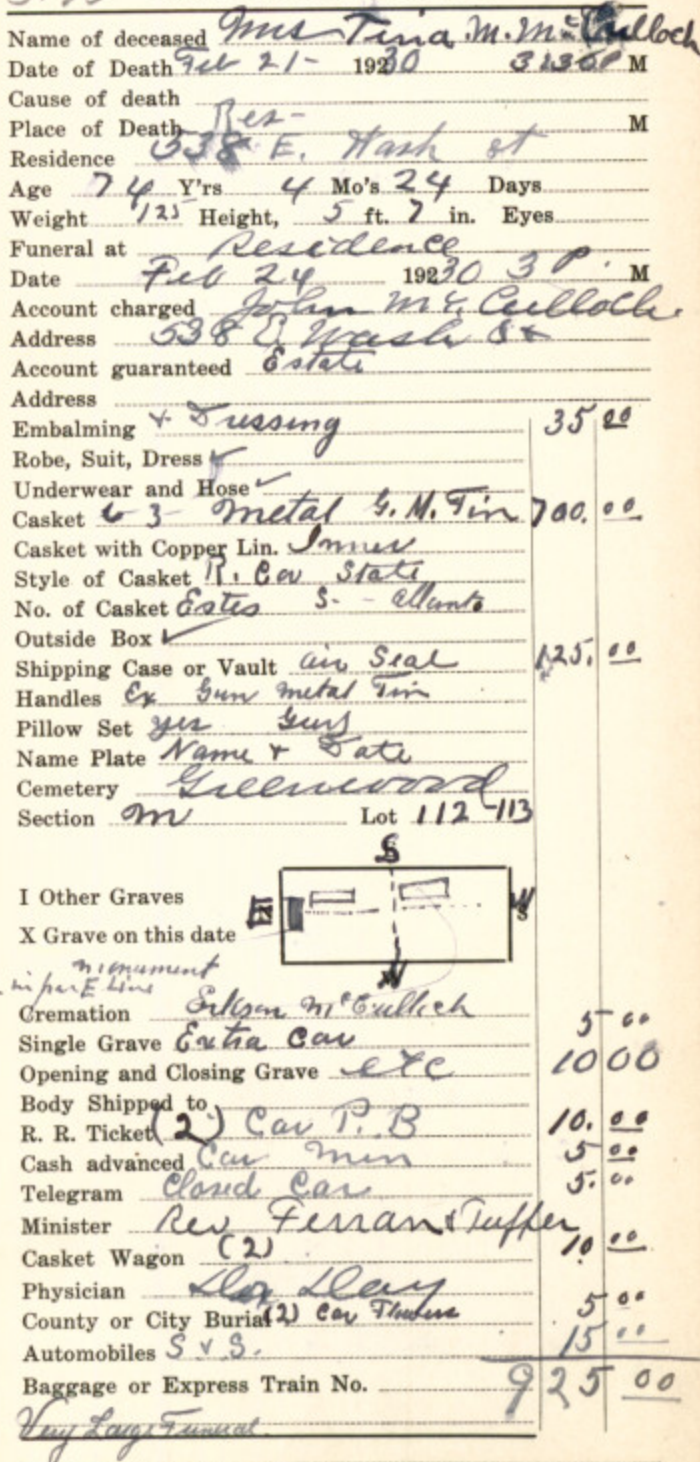 Name of deceased Mrs Tina M. McCulloch
Date of Death Feb 21- 1930 3:30 P M
Cause of death
Place of Death Res- M
Residence 538 E. Wash st
Age 74 Y'rs 4 Mo's 24 Days
Weight 125 Height, 5 ft. 7 in. Eyes
Funeral at Residence
Date Feb 24 19230 3 P. M
Account charged John McCulloch.
Address 538 E Wash St
Account guaranteed Estate
Address
Embalming + Dressing 35 00
Robe, Suit, Dress ✓
Underwear and Hose ✓
Casket 6 3 Metal G. M. Fin 700. 00
Casket with Copper Lin. Inner
Style of Casket State
No. of Casket Estes S. -
Outside Box ✓
Shipping Case or Vault air Seal 125. 00
Handles Ex Gun metal Fin
Pillow Set yes
Name Plate Name & Date
Cemetery Greenwood
Section M Lot 112-113
S
I Other Graves
X Grave on this date
E W
N
monument
in E Line
Cremation McCulloch 5 00
Single Grave Extra Car
Opening and Closing Grave etc 10 00
Body Shipped to
R. R. Ticket (2) Car P. B 10. 00
Cash advanced Car Men 5 00
Telegram Closed Car 5. 00
Minister Rev Ferran &
Casket Wagon (2) 10 00
Physician Day
County or City Burial (2) Car Flowers 5 00
Automobiles S & S. 15 00
Baggage or Express Train No. 925 00
Very Large Funeral.